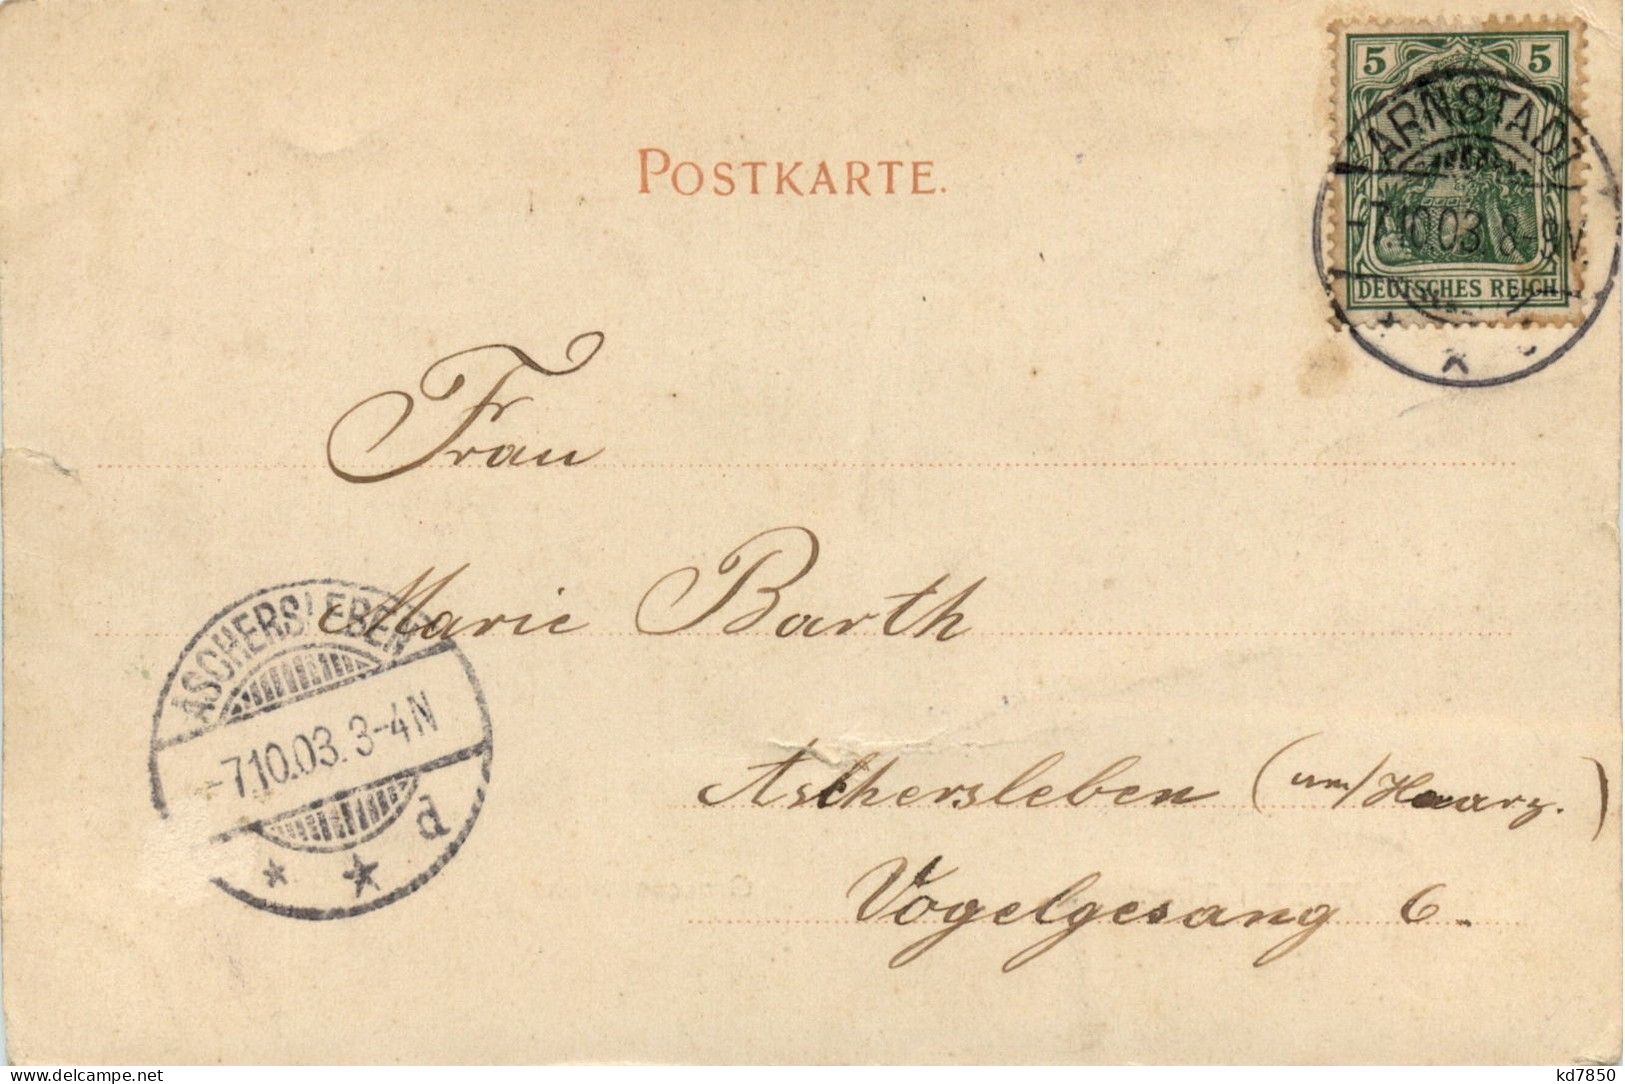 5 5
ARNSTADT
-7.10.03. 8-9N.
DEUTSCHES REICH
POSTKARTE.
Frau
Marie Barth
ASCHERSLEBEN
-7.10.03. 3-4N
* * d
Aschersleben (am/Haarz.)
Vogelgesang 6.
delcampe.net
kd7850